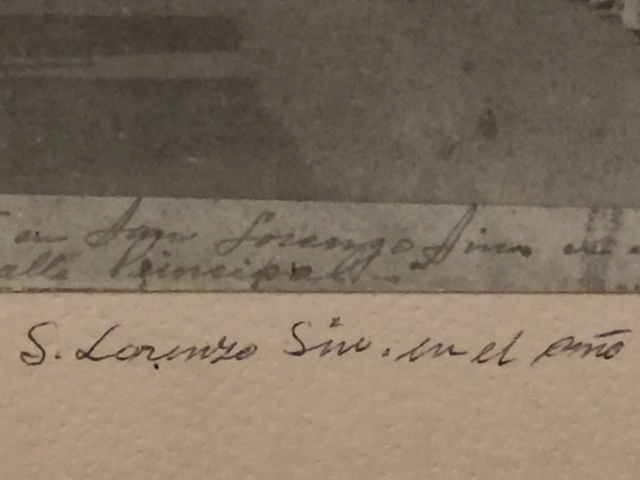 en San Lorenzo Sina en
alle Principal.-
S. Lorenzo Sin. en el año